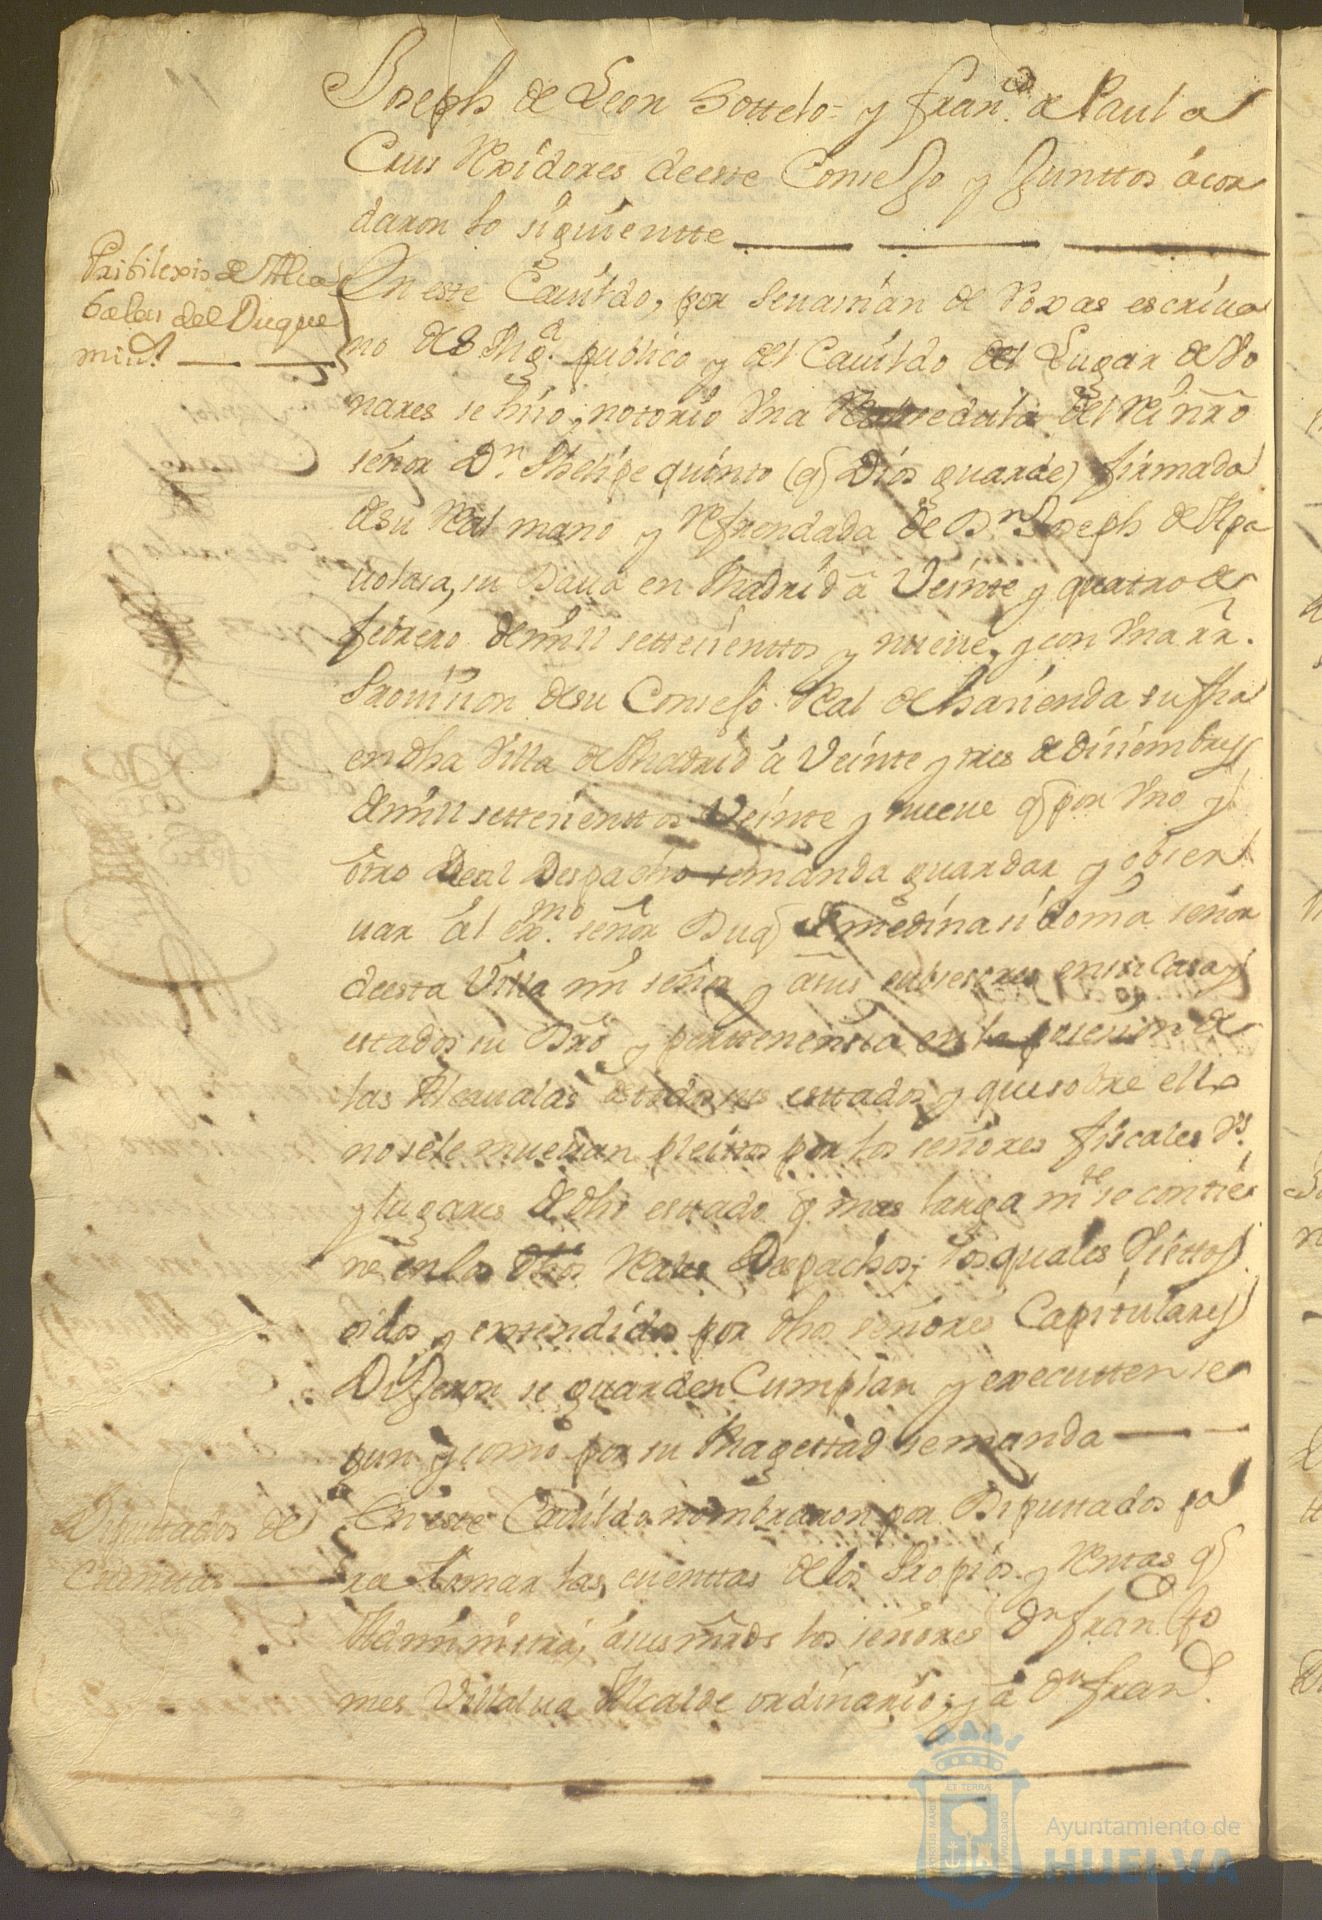 Joseph de Leon Sottelo = y fran.co de Paula
Crus Rexidores deeste Consejo y Junttos acor
daron lo siguientte
Pribilexio de Alca
balas del Duque
mi sr
En este Cavildo, por Sevastian de Roxas escriva
no de S Mg.d publico y del Cavildo del Lugar de Bo
nares se hiso notorio Una Real cedula del Rei nro
señor Dn Phelipe quinto (q Dios guarde) firmada
de su Real mano y Refrendada de Dn Joseph de
su Data en Madrid a Veinte y quatro de
febrero de mill settecienttos y nueve, y con Una rr.
Provicion de su Consejo Real de hacienda su fha
en dha Villa de Madrid a Veinte y tres de diciembre
de mill settecienttos Veinte y nueve q por Uno y
otro Real Despacho se manda guardar y obser
var al exmo. señor Duq de medina sidonia señor
deesta Villa mi señor y a sus subsesores en su Casa y
estados su Dro y perttenencia en la posesion de
las Alcavalas de todos sus esttados y que sobre ello
no se le muevan pleitos por los señores fiscales Vs.
y lugares de dho esttado q mas larga mte se contie
ne en los dhos Reales Despachos; los quales Vistos
oidos y entendidos por dhos señores Capitulares
Dijeron se guarden Cumplan y executten se
gun y como por su Magesttad se manda
Diputtados de
Cuenttas
En este Cavildo nombraron por Diputtados pa
ra tomar las cuenttas de los Propios y Rentas q
Administra, a sus mrds los señores Dn fran.co Go
mes Villalva Alcalde ordinario; y a Dn fran.co
ET TERRA
Ayuntamiento de
HUELVA